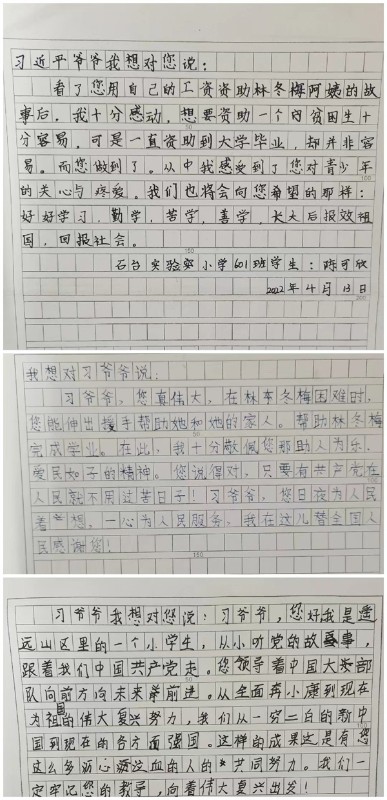 习近平爷爷我想对您说：
看了您用自己的工资资助林冬梅阿姨的故
事后，我十分感动，想要资助一个内贫困生十
分容易，可是一直资助到大学毕业，却并非容
易。而您做到了。从中我感受到了您对青少年
的关心与疼爱。我们也将会向您希望的那样：
好好学习，勤学，苦学，善学，长大后报效祖
国，回报社会。
石台实验小学601班学生：陈可欣
2022年4月13日
我想对习爷爷说：
习爷爷，您真伟大，在林李冬梅困难时，
您能伸出援手帮助她和她的家人。帮助林冬梅
完成学业。在此，我十分敬佩您那助人为乐，
爱民如子的精神。您说得对，只要有共产党在
人民就不用过苦日子！习爷爷，您日夜为人民
着想，一心为人民服务，我在这儿替全国人
民感谢您！
习爷爷我想对您说：习爷爷，您好我是遥
远山区里的一个小学生，从小听党的故事，
跟着我们中国共产党走。您领导着中国大部
队向前方向未来前进。从全面小康到现在
为祖国的伟大复兴努力，我们从一穷二白的新中
国到现在的各方面强国。这样的成果这是有您
这么多沥心沥血的人的共同努力。我们一
定牢记您的教导，向着伟大复兴出发！